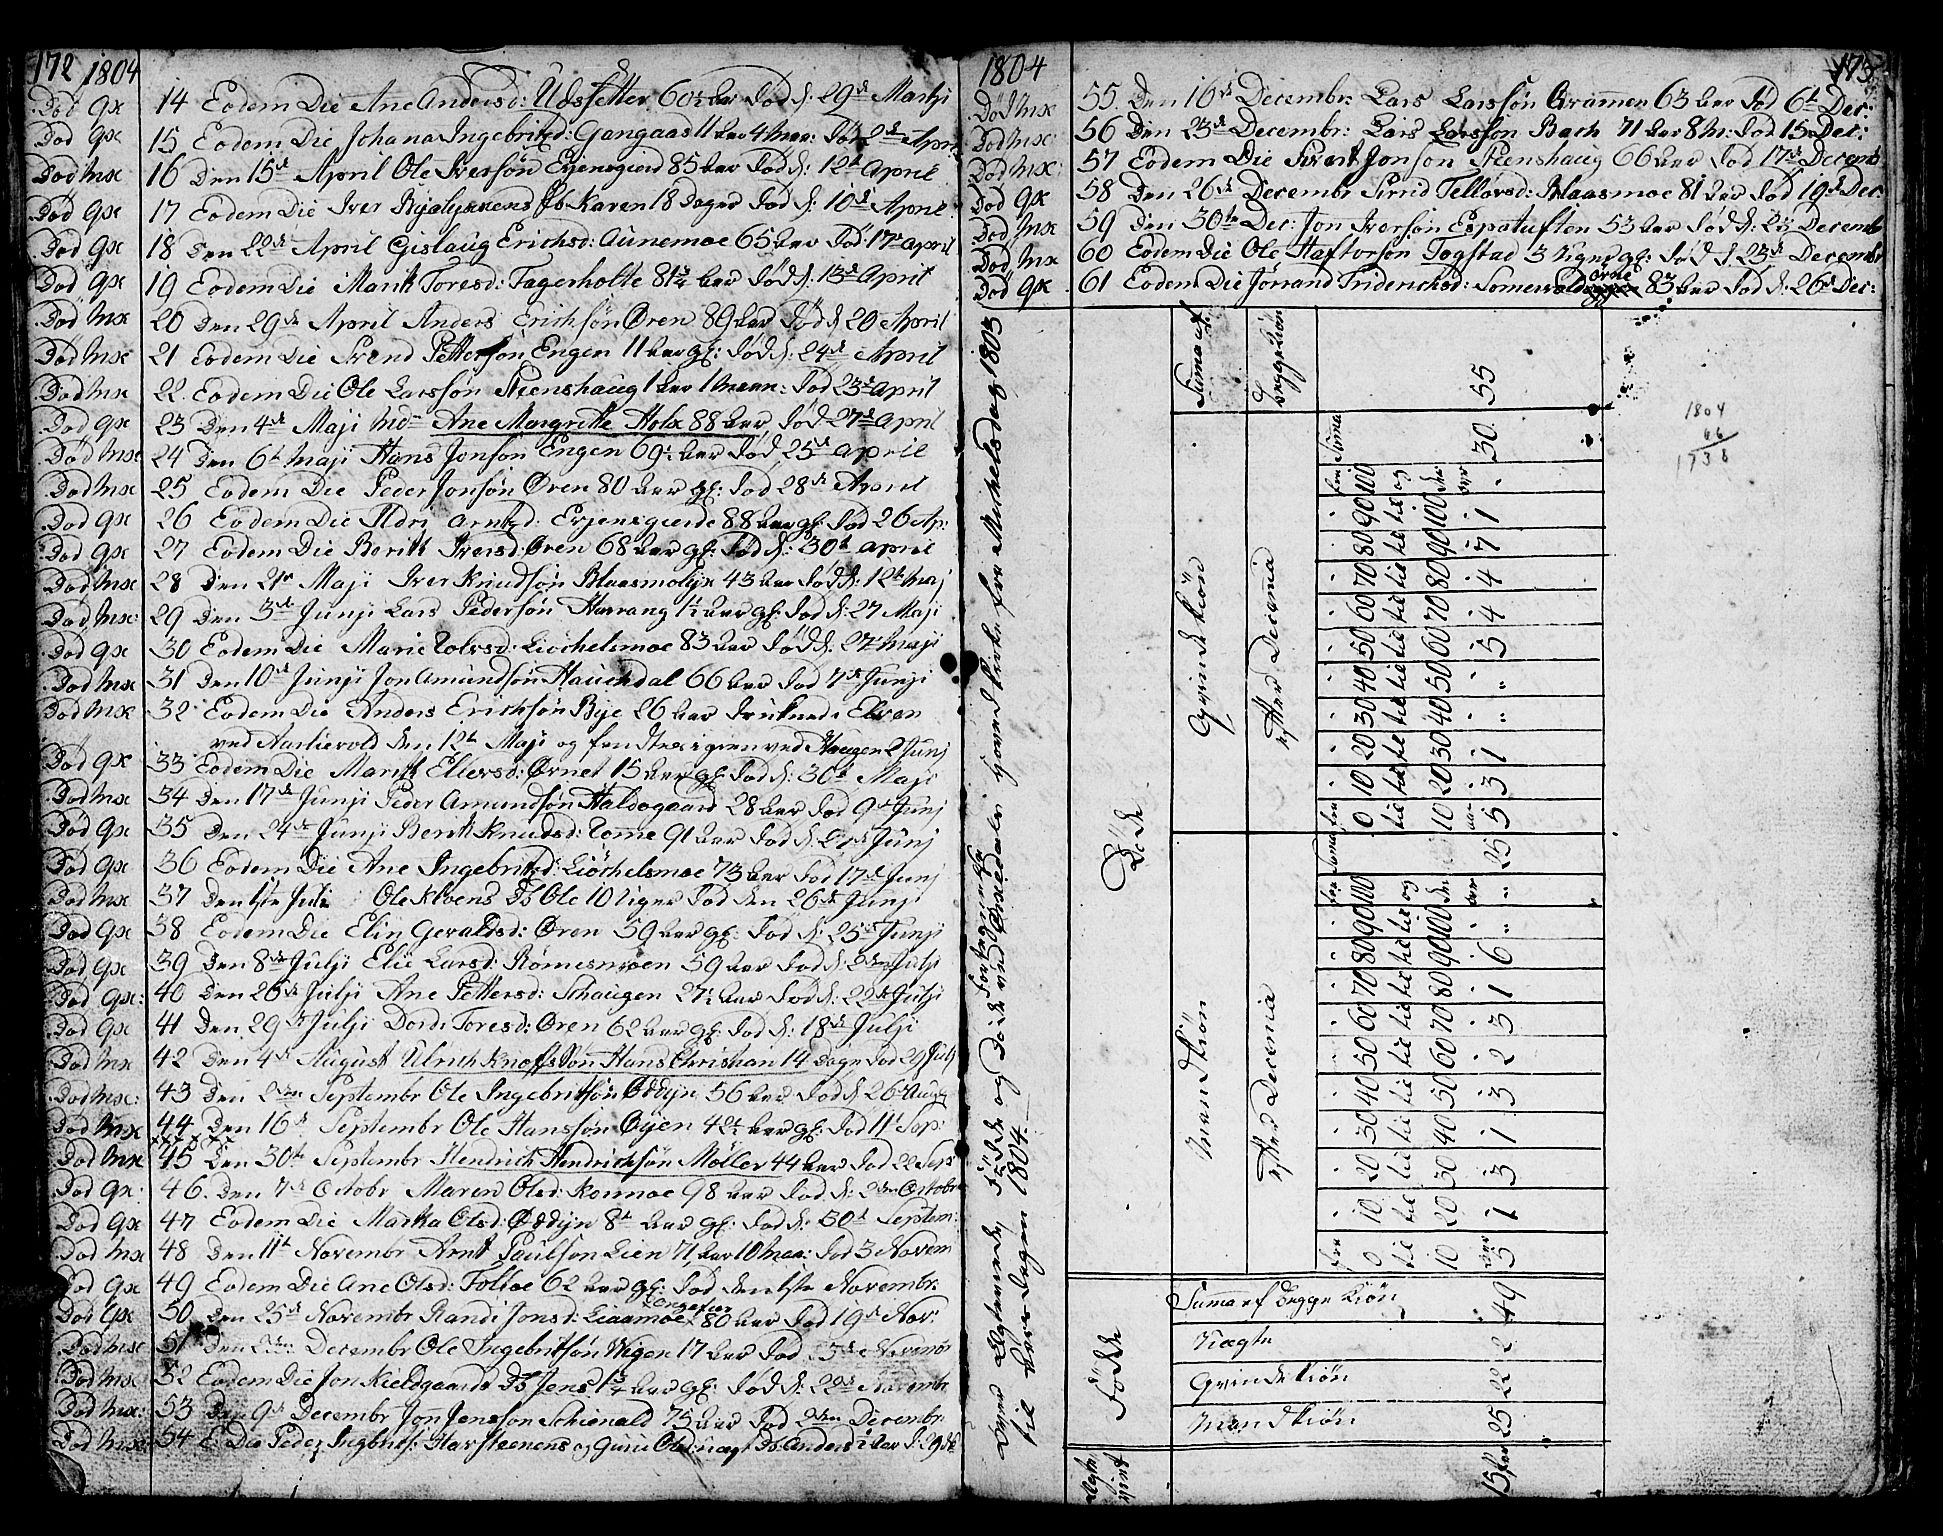 172 1804
Død Qx 14 Eodem Die Ane Andersd: Udsetter 60½ Aar Død d: 29de Martji
Død Qx 15 Eodem Die Johana Ingebritzd: Gangaas 11 Aar 4 Maan: Død 2de Apri
Død Mx 16 Den 15de April Ole Iversøn Evjensgierd 85 Aar Død d: 12te April
Død Qx 17 Eodem Die Iver Pb Karen 18 Dager Død d: 10de April
Død Qx 18 Den 22de April Gislaug Erichsd: Aunemoe 65 Aar Død: 17de April
Død Qx 19 Eodem Die Marit Toresd: Fagerholte 81¾ Aar Død d: 13de April
Død Mx 20 Den 29de April Anders Erichsøn Øren 89 Aar Død d 20 April
Død Mx 21 Eodem Die Svend Pettersøn Engen 11 Aar gl: Død d: 24de April
Død Mx 22. Eodem Die Ole Larssøn Steenshaug 1 Aar 1 Maan: Død 23de April
Død Qx 23 Den 4de Maji Md= Ane Margrethe Holx 88 Aar Død 27de April
Død Mx 24 Den 6te Maji Hans Jonsøn Engen 69½ Aar Død 25de April
Død Mx 25 Eodem Die Peder Jonsøn Øren 80 Aar gl: Død 28de April
Død Qx 26 Eodem Die Ildri Arntzd: Evjensgierde 88 Aar gl: Død 26 Ap:
Død Qx 27 Eodem Die Beritt Iversd: Øren 68 Aar gl: Død d: 30te April
Død Mx 28 Den 21de Maji Iver Knudsøn 43 Aar Død d: 12te Maj
Død Mx: 29 Den 3die Junji Lars Pedersøn Harrang 1½ Aar gl: Død d: 27 Maji
Død Qx 30 Eodem Die Marie Tolvsd: Liøthelsmoe 83 Aar Død d: 27de Maji
Død Mx 31 Den 10de Junji Jon Amundsøn Hauendal 66 Aar Død 7de Junji
Død Mx 32 Eodem Die Anders Erichsøn Bye 26 Aar druknede i Elven
ved Aarlivold den 12te Maji og fandtes igien ved Haugen 2 Junj
Død Qx 33 Eodem Die Marit Ellevsd: Ørnet 15 Aar gl: Død d: 30te Maji
Død Mx 34 Den 17de Junji Peder Amundsøn Haldogaard 28 Aar Død 9de Junj
Død Qx 35 Den 24de Junji Berit Knudsd: Romme 91 Aar Død d: Junj
Død Qx 36 Eodem Die Ane Ingebritzd: Liøthelsmoe 73 Aar Død 17de Junj
Død Mx 37 Den 1ste Juli Ole Kloens Db Ole 10 Uger Død den 26de Junji
Død Qx 38 Eodem Die Elin Geraldsd: Øren 59 Aar gl: Død d: 25de Junji
Død Qx 39 Den 8de Julji Elie Larsd: Rømesmoen 59 Aar Død d: 2den Julji
Død Qx: 40 Den 26de Julji Ane Pettersd: Schaugen 27½ Aar Død d: 22de Julji
Død Qx 41 Den 29de Julji Dordi Toresd: Øren 62 Aar gl: Død d: 18de Julji
Død Mx 42 Den 4de August Ulrich Knoffs Søn Hans Christian 14 Dage Død 29 Julj
Død Mx: 43 Den 2den Septembr Ole Ingebritsøn Øddyn 56 Aar Død d 26 Aug
Død Mx 44 Den 16de Septembr Ole Hanssøn Øyen 42½ Aar gl: Død 11te Sep:
Død Mx 45 Den 30te Septembr Hendrich Hendrichsøn Møller 44 Aar Død 22 Sept
Død Qx: 46. Den 7de Octobr Maren Olsd: Konmoe 98 Aar Død d: 2den Octobr
Død Qx 47 Eodem Die Martha Olsd: Øddyn 8te Aar gl: Død d: 30te Septem:
Død Mx 48 Den 11te Novembr Arnt Paulsøn Lien 71 Aar 10 Maan: Død 3 Novem
Død Qx 49 Eodem Die Ane Olsd: Folloe 62 Aar gl: Død den 1ste Novembr:
Død Qx 50 Den 25de Novembr Randi Jonsd: Liaamoe 80 Aar Død 19de Nov:
Død Mx 51 Den 2den Decembr Ole Ingebritsøn Wigen 17 Aar Død Novembr
Død Mx: 52 Eodem Die Jon Kieldgaards Db Jens 1¾ Aar gl: Død d: 22de Novembr
Død Mx: 53 Den 9de Decembr Jon Jenssøn Schienald 75 Aar Død 2den Decembr
Død Mx: 54 E: Die Peder Ingbritz: og Guru Olsd: uægt Db Anders 2 Aar d: 29de
1804 173
Død Mx 55. Den 16de Decembr: Lars Larssøn Grammen 63 Aar Død 6te Dec:
Død Mx: 56 Den 23de Decembr: Lars Larssøn Bach 71 Aar 8 M: Død 15 Dec:
Død Mx: 57 Eodem Die Sivert Jonsøn Steenshaug 66 Aar Død 17de Decemb
Død Qx 58 Den 26de Decembr Sirid Tellovsd: Blaasmoe 81 Aar Død 19de Dec:
Død Mx 59 Den 30te Dec: Jon Iversøn Espatuften 53 Aar Død d: 23 Decemb
Død Mx 60 Eodem Die Ole Haftorsøn Togstad 3 Uger gl: Død d 23de Decembr
Død Qx 61 Eodem Die Jørand Friderichsd: Somervold 83 Aar Død d: 26de Dec:
Fortegnelse
Over Egteviede, Fødde og Døde ved Ørkedals Hovedkirke fra Michelsdag 1803
til Aars Dagen 1804.
Døde
Suma af begge Kiøn 55
Qvindekiøn
efter Decennia
fra 0 til 10 aar 5
10 til 20 3
20 til 30 1
30 til 40 "
40 til 50 "
50 til 60 5
60 til 70 4
70 til 80 4
80 til 90 7
90 til 100 1
fra 100 og der over "
Suma 30.
Mandkiøn
efter Decennia
fra 0 til 10 Aar 5
10 til 20 1
20 til 30 3
30 til 40 1
40 til 50 3
50 til 60 2
60 til 70 3
70 til 80 1
80 til 90 6
90 til 100 "
fra 100 og der over "
Suma 25
Fødde
Suma af begge Kiøn 49
Uægte 2
Qvindekiøn 22
Mandkiøn 25
Egte viede 15 Par
1804
66
1738